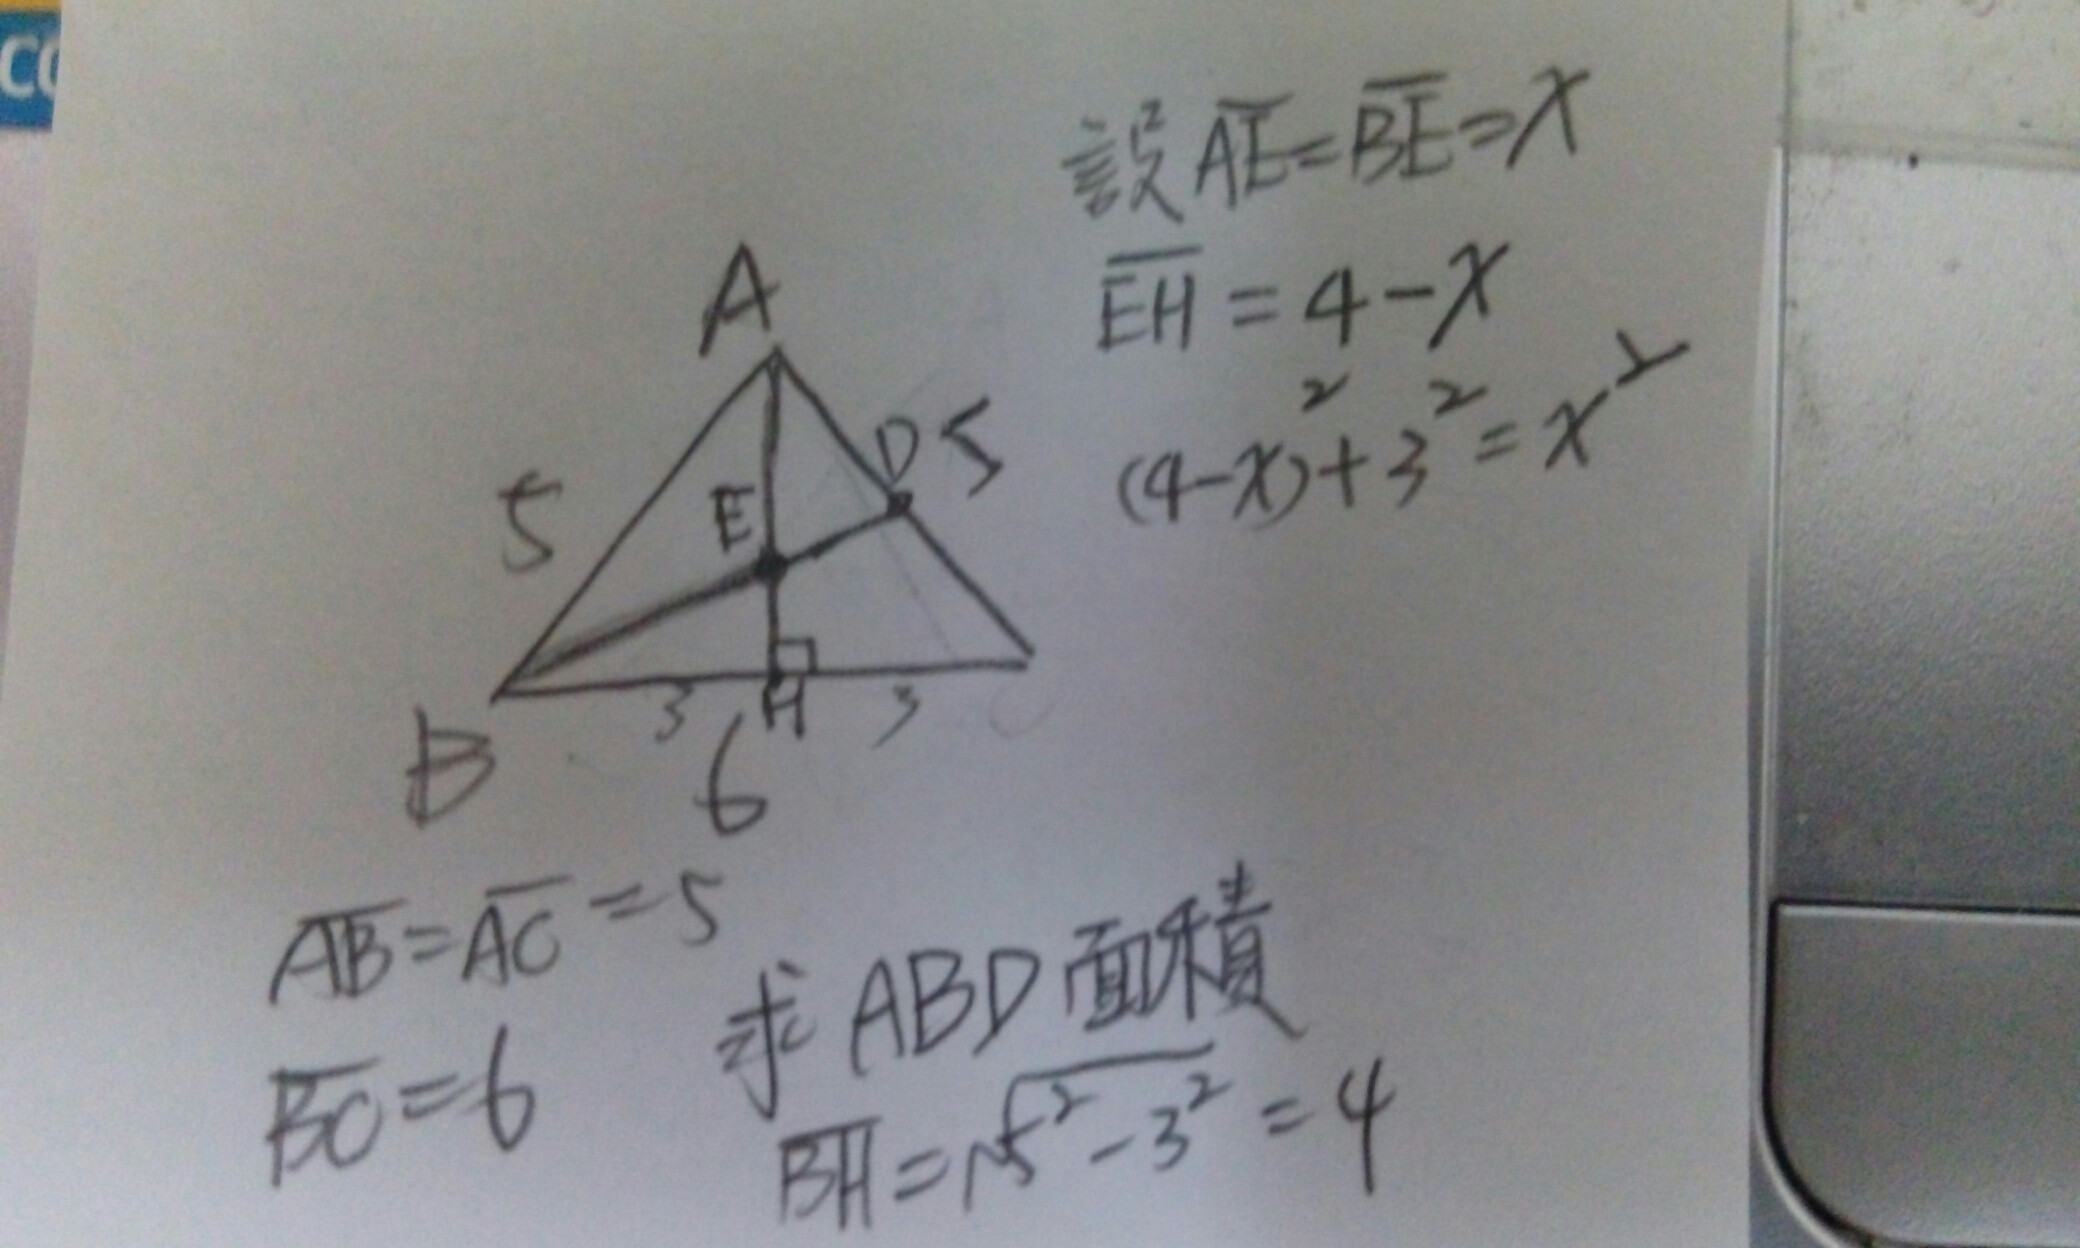 CO
設 AE=BE=x
EH=4-x
(4-x)²+3²=x²
A
5
D 5
E
3 H 3
B C
6
AB=AC=5
BC=6
求ABD面積
BH=√5²-3²=4